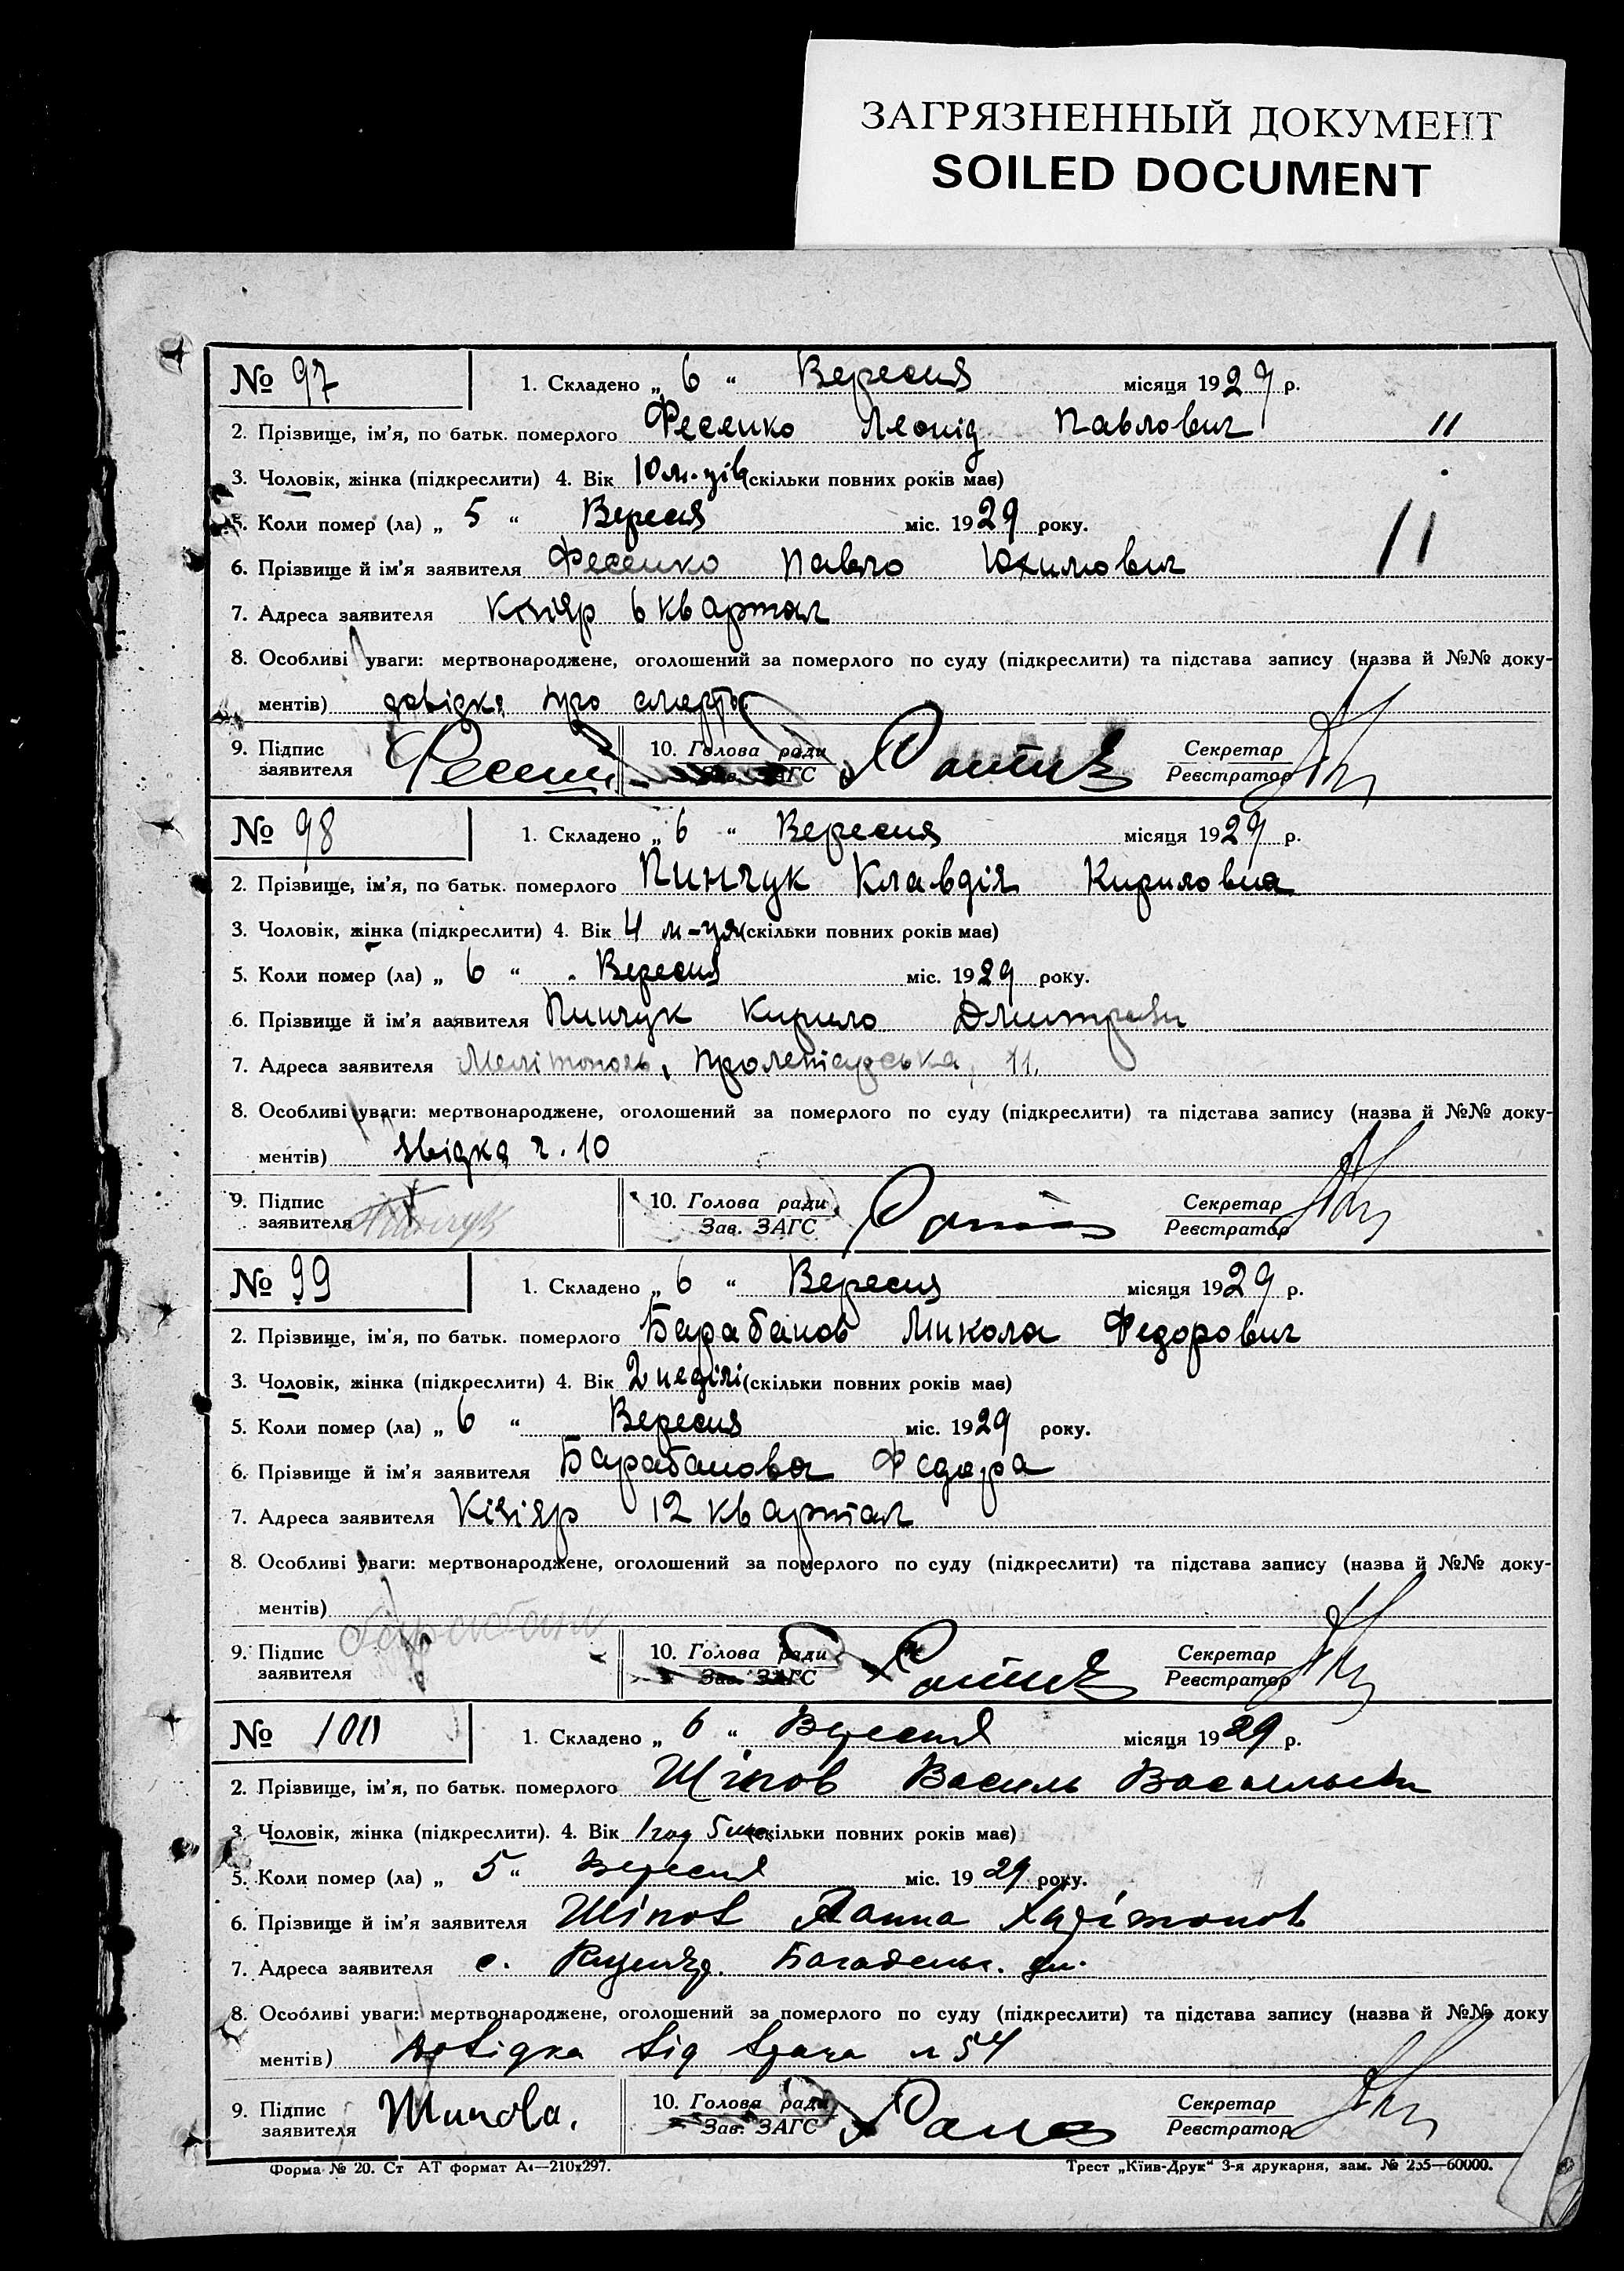 ЗАГРЯЗНЕННЫЙ ДОКУМЕНТ
SOILED DOCUMENT
№ 97 1. Складено „ 6 “ Вересня місяця 1929 р.
2. Прізвище, ім’я, по батьк. померлого Фесенко Леонід Павлович 11
3. Чоловік, жінка (підкреслити) 4. Вік 10 м-ців (скільки повних років має)
5. Коли помер (ла) „ 5 “ Вересня міс. 1929 року. 11
6. Прізвище й ім’я заявителя Фесенко Павло Юхимович
7. Адреса заявителя Кізіяр 6 квартал
8. Особливі уваги: мертвонароджене, оголошений за померлого по суду (підкреслити) та підстава запису (назва й №№ доку-
ментів) довідка про смерть
9. Підпис заявителя 10. Голова ради Секретар
Зав. ЗАГС Реєстратор
№ 98 1. Складено „ 6 “ Вересня місяця 1929 р.
2. Прізвище, ім’я, по батьк. померлого Пинчук Клавдія Кириловна
3. Чоловік, жінка (підкреслити) 4. Вік 4 м-ця (скільки повних років має)
5. Коли помер (ла) „ 6 “ Вересня міс. 1929 року.
6. Прізвище й ім’я заявителя Пинчук Кирило Дмитрови
7. Адреса заявителя Мелітополь, Пролетарська, 11.
8. Особливі уваги: мертвонароджене, оголошений за померлого по суду (підкреслити) та підстава запису (назва й №№ доку-
ментів) звідка ч. 10
9. Підпис заявителя Пинчук 10. Голова ради Секретар
Зав. ЗАГС Реєстратор
№ 99 1. Складено „ 6 “ Вересня місяця 1929 р.
2. Прізвище, ім’я, по батьк. померлого Барабанов Микола Федорович
3. Чоловік, жінка (підкреслити) 4. Вік 2 неділі (скільки повних років має)
5. Коли помер (ла) „ 6 “ Вересня міс. 1929 року.
6. Прізвище й ім’я заявителя Барабанова Федора
7. Адреса заявителя Кізіяр 12 квартал
8. Особливі уваги: мертвонароджене, оголошений за померлого по суду (підкреслити) та підстава запису (назва й №№ доку-
ментів)
9. Підпис заявителя 10. Голова ради Секретар
Зав. ЗАГС Реєстратор
№ 100 1. Складено „ 6 “ Вересня місяця 1929 р.
2. Прізвище, ім’я, по батьк. померлого Шіпов Василь Васильеви
3. Чоловік, жінка (підкреслити). 4. Вік 1 год 5 (скільки повних років має)
5. Коли помер (ла) „ 5 “ Вересня міс. 1929 року.
6. Прізвище й ім’я заявителя Шіпов Ганна
7. Адреса заявителя с.
8. Особливі уваги: мертвонароджене, оголошений за померлого по суду (підкреслити) та підстава запису (назва й №№ доку
ментів) Довідка від врача 54
9. Підпис заявителя Шипова. 10. Голова ради Секретар
Зав. ЗАГС Реєстратор
Форма № 20. Ст АТ формат А4—210х297. Трест „Київ-Друк“ 3-я друкарня, зам. № 255—60000.